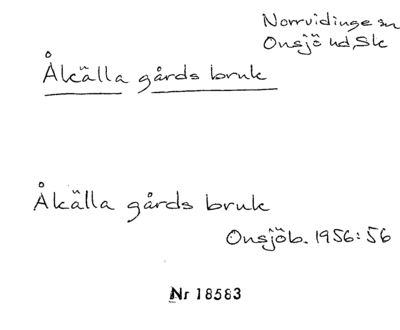 Norrvidinge sn
Onsjö hd, Sk
Åkälla gårds bruk
Åkälla gårds bruk
Onsjöb. 1956:56
Nr 18583